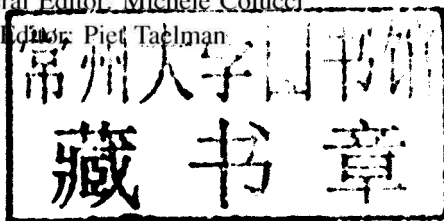 ral Editor: Michele Colucci
Editor: Piet Taelman
常州大学图书馆
藏书章